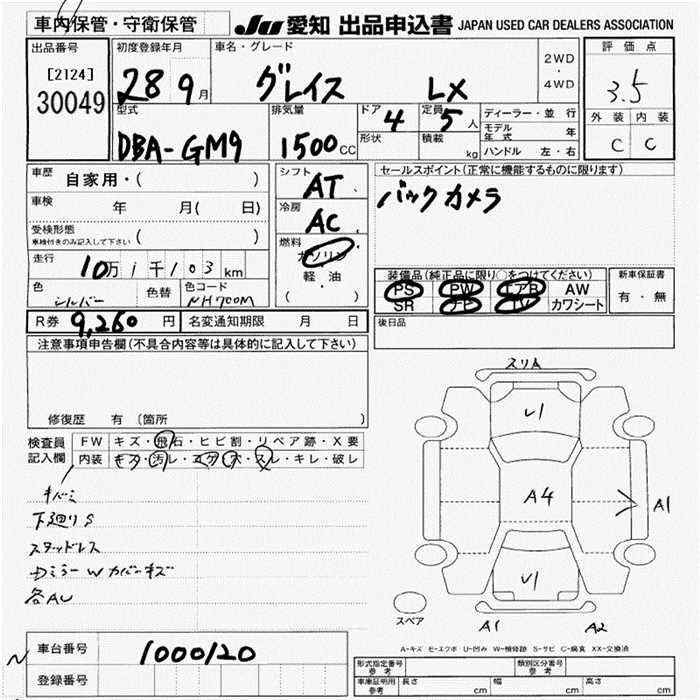 車内保管・守衛保管
JU 愛知 出品申込書 JAPAN USED CAR DEALERS ASSOCIATION
出品番号
[2124]
30049
初度登録年月
28 9月
車名・グレード
グレイス LX
2WD
・
4WD
評価点
3.5
外装 内装
C C
型式
DBA-GM9
排気量
1500 CC
ドア 4
形状
定員 5人
積載 kg
ディーラー・並行
モデル年式 年
ハンドル 左・右
車歴 自家用・( )
車検 年 月( 日)
受検形態
車検付きのみ記入して下さい ( )
走行 10万1千103km
色 シルバー
色替
色コード NH700M
シフト AT
冷房 AC
燃料
ガソリン
軽・油
( )
セールスポイント(正常に機能するものに限ります)
バックカメラ
装備品(純正品に限り○をつけてください)
PS PW エアB AW
SR ナビ TV カワシート
新車保証書
有・無
後日品
R券 9,260 円
名変通知期限 月 日
注意事項申告欄(不具合内容等は具体的に記入して下さい)
修復歴 有 〔箇所 〕
検査員
記入欄
FW キズ・飛石・ヒビ割・リペア跡・X要
内装 キズ・汚レ・コゲ・穴・スレ・キレ・破レ
キバミ
下廻りS
スタッドレス
ドミラーWカバーキズ
各AU
スリA
U1
A4
A1
U1
スペア
A1
A2
A-キズ E-エクボ U-凹み W-補修跡 S-サビ C-腐食 XX-交換済
車台番号 1000120
登録番号
形式指定番号
参考
類別区分番号
参考
車庫証明用
参考
長さ cm
幅 cm
高さ cm